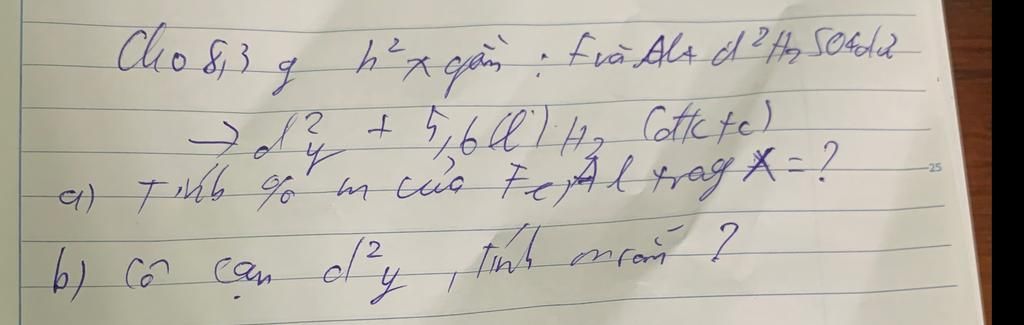 Cho 8,3 g h² x gồm : F và Al + d² H₂SO4 dư
→ d² y + 5,6 (l) H₂ (đktc)
a) Tính % m của Fe, Al trog X = ?
b) Cô cạn d² y, tính m rắn ?
25